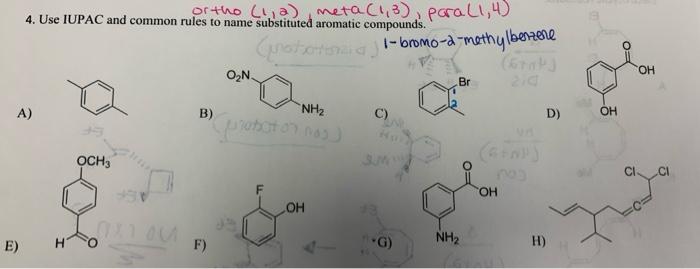 ortho (1,2), meta(1,3), para(1,4)
4. Use IUPAC and common rules to name substituted aromatic compounds.
1-bromo-2-methylbenzene
A)
B) O₂N NH₂
C) Br 1 2
D) O OH OH
E) OCH₃ H O
F) F OH
G) O OH NH₂
H) Cl Cl C